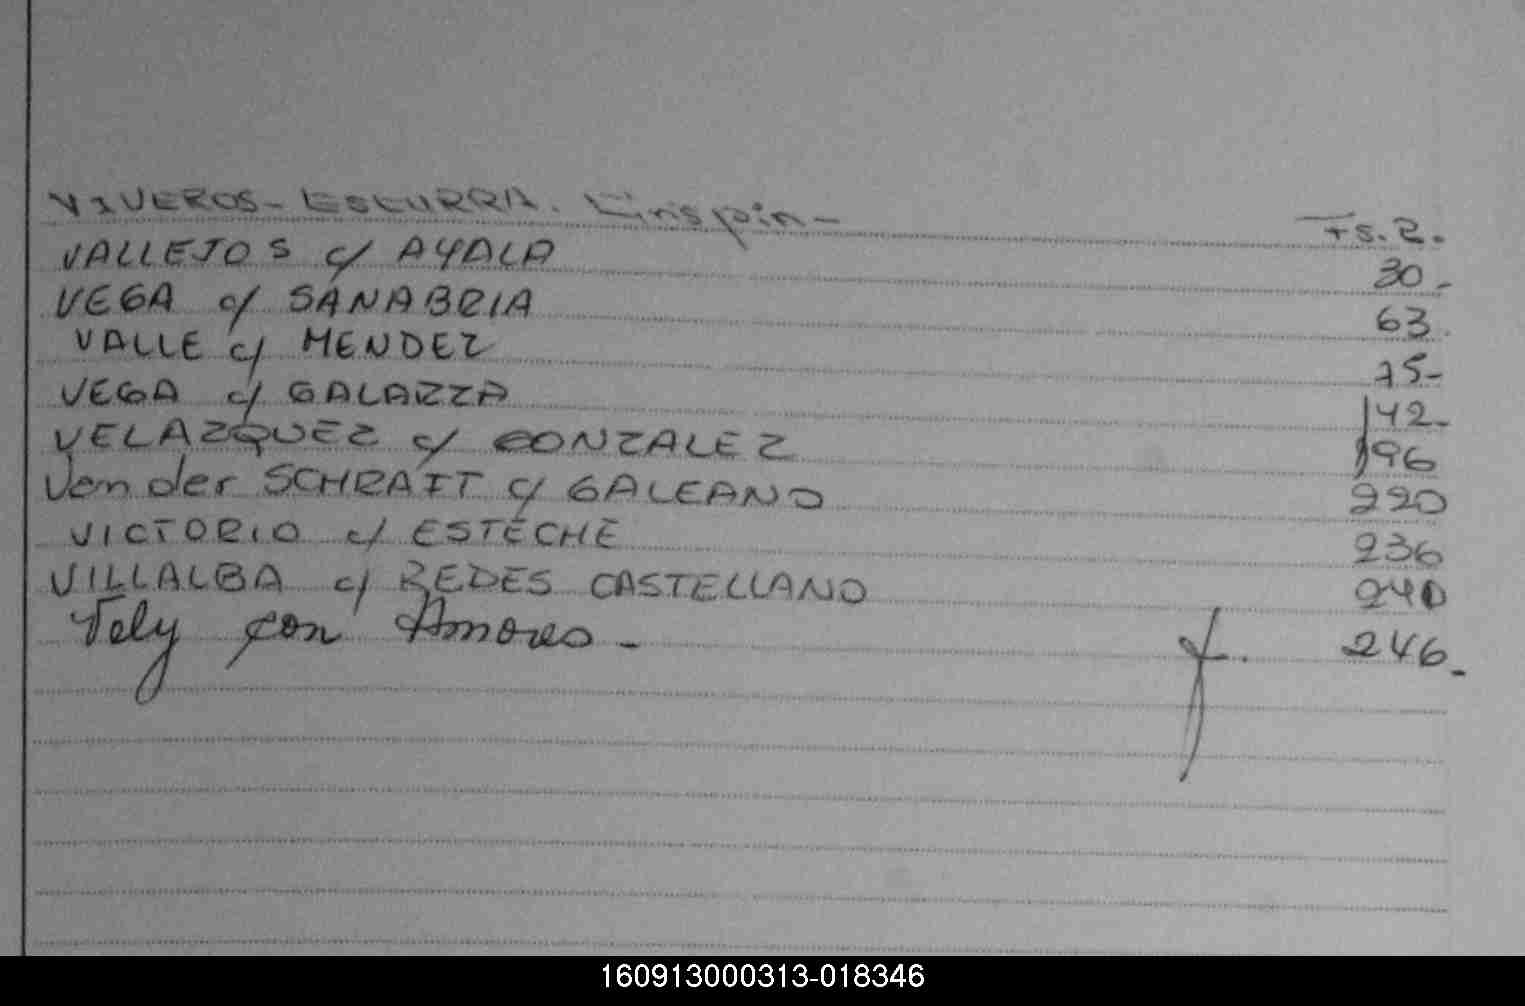 VIVEROS - ESCURRA. Crispin - Fs. 2.
VALLEJOS c/ AYALA 30-
VEGA c/ SANABRIA 63.
VALLE c/ MENDEZ 75-
VEGA c/ GALARZZA 142-
VELAZQUEZ c/ GONZALEZ 196
Von der SCHRAFT c/ GALEANO 220
VICTORIO c/ ESTECHE 236
VILLALBA c/ REDES CASTELLANO 240
con Amores - 246.-
160913000313-018346